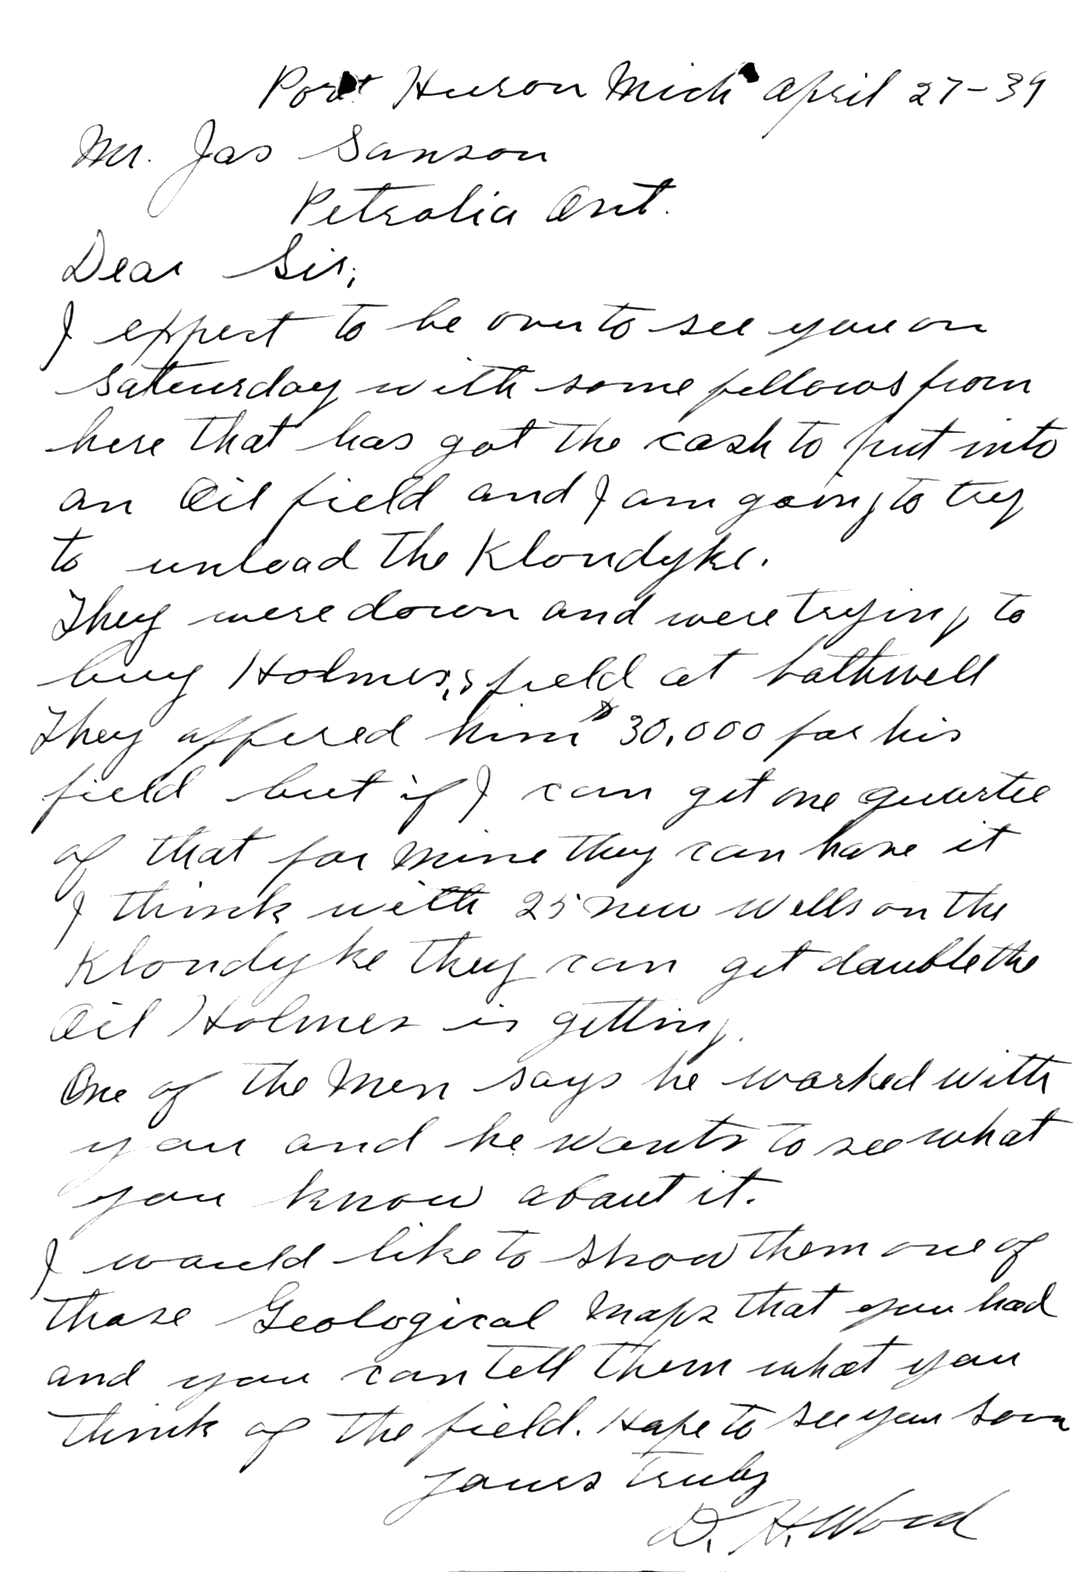 Port Huron Mich April 27-39
Mr. Jas Sanson
Petrolia Ont.
Dear Sir,
I expect to be over to see you on
Saturday with some fellows from
here that has got the cash to put into
an Oil field and I am going to try
to unload the Klondyke.
They were down and were trying to
buy Holmes,s field at bothwell
They offered him $30,000 for his
field but if I can get one quarter
of that for mine they can have it
I think with 25 new wells on the
Klondyke they can get double the
Oil Holmes is getting.
One of the Men says he worked with
you and he wants to see what
you know about it.
I would like to show them one of
those Geological Maps that you had
and you can tell them what you
think of the field. Hope to see you soon
yours truly
D. H. Wood